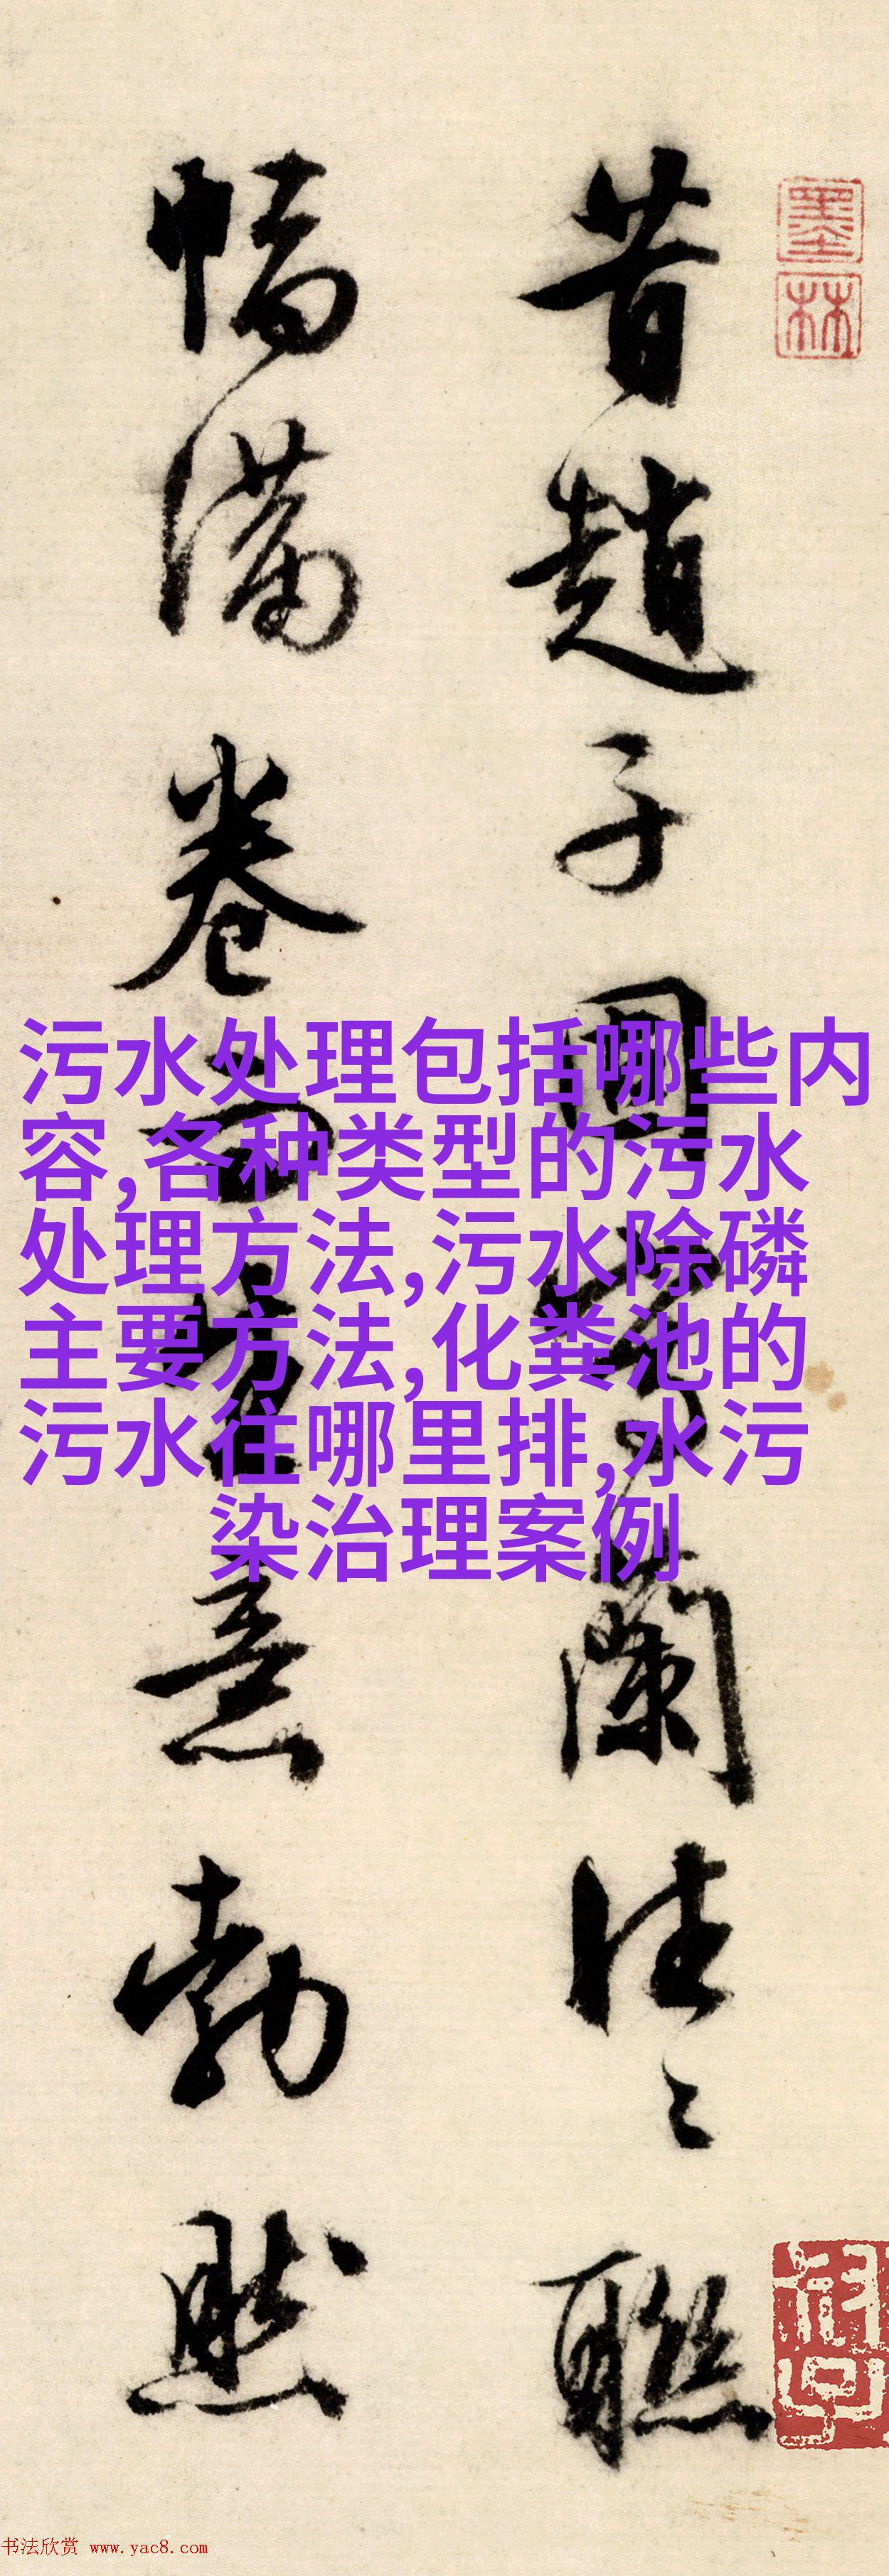 昔趙子固寫蘭往々聯
幅滿卷而意勃然
污水处理包括哪些内
容,各种类型的污水
处理方法,污水除磷
主要方法,化粪池的
污水往哪里排,水污
染治理案例
墨
林
书法欣赏 www.yac8.com